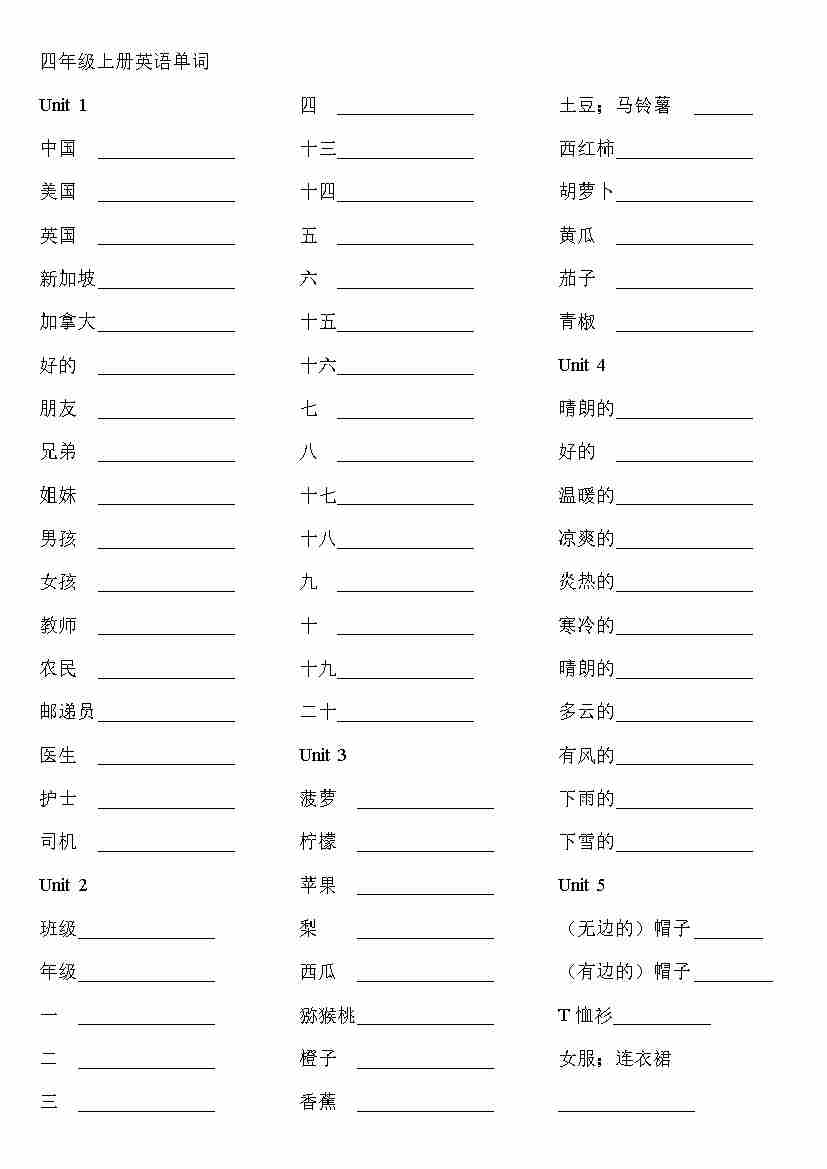 四年级上册英语单词
Unit 1
中国 ______________
美国 ______________
英国 ______________
新加坡______________
加拿大______________
好的 ______________
朋友 ______________
兄弟 ______________
姐妹 ______________
男孩 ______________
女孩 ______________
教师 ______________
农民 ______________
邮递员______________
医生 ______________
护士 ______________
司机 ______________
Unit 2
班级______________
年级______________
一 ______________
二 ______________
三 ______________
四 ______________
十三______________
十四______________
五 ______________
六 ______________
十五______________
十六______________
七 ______________
八 ______________
十七______________
十八______________
九 ______________
十 ______________
十九______________
二十______________
Unit 3
菠萝 ______________
柠檬 ______________
苹果 ______________
梨 ______________
西瓜 ______________
猕猴桃______________
橙子 ______________
香蕉 ______________
土豆；马铃薯 ______
西红柿______________
胡萝卜______________
黄瓜 ______________
茄子 ______________
青椒 ______________
Unit 4
晴朗的______________
好的 ______________
温暖的______________
凉爽的______________
炎热的______________
寒冷的______________
晴朗的______________
多云的______________
有风的______________
下雨的______________
下雪的______________
Unit 5
（无边的）帽子_______
（有边的）帽子________
T 恤衫__________
女服；连衣裙
______________